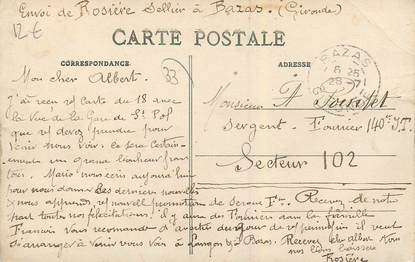 Envoi de Rosière Sellier à Bazas. (Gironde)
12€
CARTE POSTALE
CORRESPONDANCE
ADRESSE
33
BAZAS
6
28
Mon cher Albert.
J'ai reçu ta Carte du 18 avec
la Vue de la Gare de St Pol
que tu devras prendre pour
venir nous voir. Ce sera certain-
ement un grand bonheur pour
tous. Mario nous écris aujourd'hui
pour nous donner les dernières nouvelles
& nous apprend ta nouvelle promotion de Sergent Fr. Reçois de notre
part toutes nos félicitations. il y aura des Fourriers dans la famille
Francis vous recommande d'avertir du jour de ta permission il veut
s'arranger à venir vous voir à Langon & à Bazas. Recevez cher Albert tous
nos bons baisers
Rosière
Monsieur A.
Sergent Fourrier 140e I.T.
Secteur 102